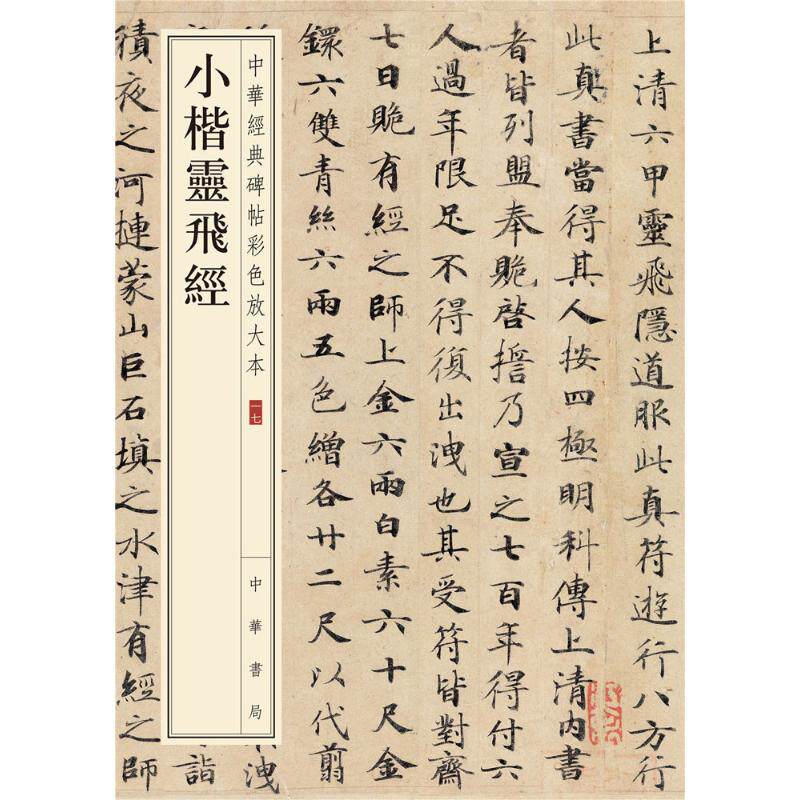 上清六甲靈飛隱道服此真符遊行八方行
此真書當得其人按四極明科傳上清內書
者皆列盟奉䝱啓誓乃宣之七百年得付六
人過年限足不得復出洩也其受符皆對齋
七日䝱有經之師上金六兩白素六十尺金
鐶六雙青絲六兩五色繒各廿二尺以代翦
中華經典碑帖彩色放大本
一七
中華書局
小楷靈飛經
洩
詣
積夜之河摙蒙山巨石填之水津有經之師